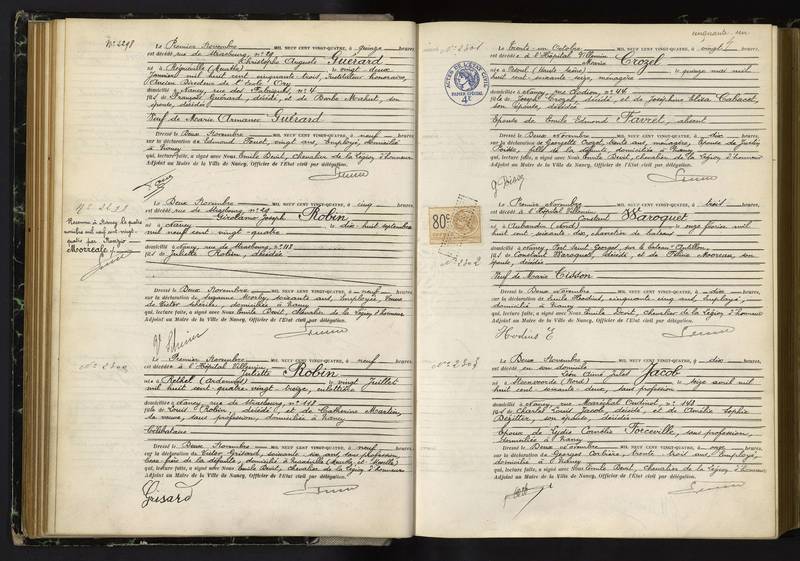 N° 2298
Le Premier Novembre MIL NEUF CENT VINGT-QUATRE, à quinze heures,
est décédé rue de Strasbourg, n° 29
Christophe Auguste Guérard
né à (Meurthe) le vingt deux
Janvier mil huit cent cinquante trois, Instituteur honoraire,
Ancien Directeur d'Ecole
domicilié à Nancy, rue des Fabriques, n° 4
fils de François Guérard, décédé, et de Barbe Mahut, son
épouse, décédée
Veuf de Marie Guérard
Dressé le Deux Novembre à neuf heures,
sur la déclaration de Edmond vingt ans, Employé, domicilié
à Nancy
qui, lecture faite, a signé avec Nous Emile Devit, Chevalier de la Légion d'honneur
Adjoint au Maire de la Ville de Nancy, Officier de l'Etat civil par délégation.
Le Deux Novembre MIL NEUF CENT VINGT-QUATRE, à cinq heures,
est décédé rue de Strasbourg, n° 29
Joseph Robin
né à Nancy le dix huit septembre
mil neuf cent vingt quatre
domicilié à Nancy, rue de Strasbourg, n° 118
fils de Juliette Robin, décédée
Reconnu à Nancy le quatre
mil neuf cent vingt-
quatre par
Morreale
Dressé le Deux Novembre MIL NEUF CENT VINGT-QUATRE, à neuf heures,
sur la déclaration de Suzanne soixante ans, Employée, Veuve
de Victor domiciliée à Nancy
qui, lecture faite, a signé avec Nous Emile Devit, Chevalier de la Légion d'honneur
Adjoint au Maire de la Ville de Nancy, Officier de l'Etat civil par délégation.
N° 2300
Le Premier Novembre MIL NEUF CENT VINGT-QUATRE, à neuf heures,
est décédée à l'Hôpital Villemin
Juliette Robin
née à Rethel (Ardennes) le vingt Juillet
mil huit cent quatre-vingt seize, culottière
domiciliée à Nancy, rue de Strasbourg, n° 118
fille de Louis Robin, décédé, et de Catherine Martin,
sa veuve, sans profession, domiciliée à Nancy
Célibataire
Dressé le Deux Novembre à neuf heures,
sur la déclaration de Victor Grisard, soixante dix ans, sans profession,
domicilié à (Meurthe et Moselle)
qui, lecture faite, a signé avec Nous Emile Devit, Chevalier de la Légion d'honneur
Adjoint au Maire de la Ville de Nancy, Officier de l'Etat civil par délégation.
Grisard
cinquante un
N° 2301
Le trente-un Octobre MIL NEUF CENT VINGT-QUATRE, à vingt heures,
est décédée à l'Hôpital Villemin
Marie Crozel
née à (Haute Saône) le quinze mai mil
huit cent soixante-seize, ménagère
domiciliée à Nancy, rue n° 44
fille de Joseph Crozel, décédé, et de Joséphine Elisa Cabacel,
son épouse, décédée
Epouse de Emile Edmond Favret, absent
ACTES DE L'ETAT CIVIL
PAPIER SPÉCIAL
Dressé le Deux Novembre à dix heures,
sur la déclaration de Georgette Crozel, trente ans, ménagère, Epouse de
fille de la défunte, domiciliée à Nancy
qui, lecture faite, a signé avec Nous Emile Devit, Chevalier de la Légion d'honneur
Adjoint au Maire de la Ville de Nancy, Officier de l'Etat civil par délégation.
80c
N° 2302
Le Premier Novembre MIL NEUF CENT VINGT-QUATRE, à trois heures,
est décédé à l'Hôpital Villemin
Constant Waroquet
né à Aubencheul (Nord) le onze février mil
huit cent soixante-dix, charretier de bateau
domicilié à Nancy, Port Saint-Georges, sur le bateau
fils de Constant Waroquet, décédé, et de Moureau, son
épouse, décédée
Veuf de Marie Tisson
Dressé le Deux Novembre MIL NEUF CENT VINGT-QUATRE, à dix heures,
sur la déclaration de Emile Hodius, cinquante cinq ans, Employé,
domicilié à Nancy
qui, lecture faite, a signé avec Nous Emile Devit, Chevalier de la Légion d'honneur
Adjoint au Maire de la Ville de Nancy, Officier de l'Etat civil par délégation.
Hodius E
N° 2303
Le Deux Novembre MIL NEUF CENT VINGT-QUATRE, à dix heures,
est décédé en son domicile
Léon Aimé Jules Jacob
né à Steenvoorde (Nord) le seize avril mil
huit cent soixante deux, sans profession
domicilié à Nancy, rue Maréchal Oudinot, n° 143
fils de Charles Louis Jacob, décédé, et de Amélie Sophie
son épouse, décédée
Epoux de Lydie Cornélie Forceville, sans profession,
domiciliée à Nancy
Dressé le Deux Novembre à onze heures,
sur la déclaration de Georges Corbière, trente trois ans, Employé,
domicilié à Nancy
qui, lecture faite, a signé avec Nous Emile Devit, Chevalier de la Légion d'honneur
Adjoint au Maire de la Ville de Nancy, Officier de l'Etat civil par délégation.